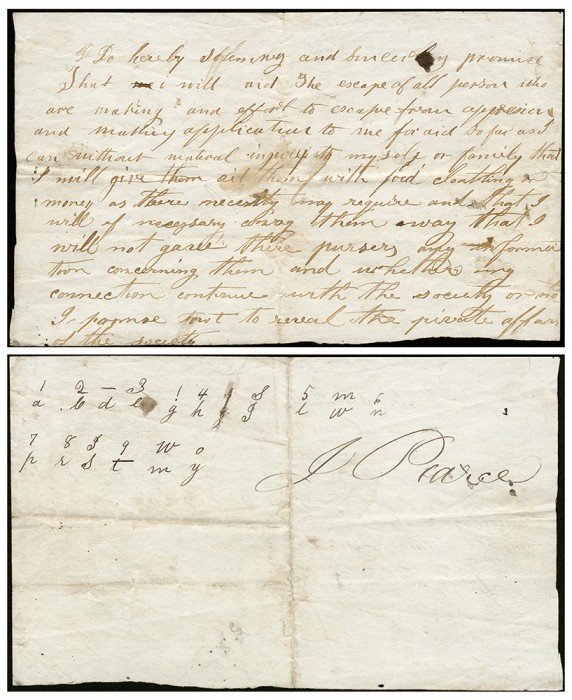 I Do hereby solemnly and sincerely promise
That i will aid The escape of all person who
are making and effort to escape from oppression
and making application to me for aid so far as I
can without material injury to myself or family that
I will give them aid them with food cloathing or
money as there necesity may require and that I
will if necessary convay them away that I
will not gave there pursers any informa
tion concerning them and whether my
connection continue with the society or not
I promise not to reveal the private affairs
of the society
1 2 — 3 1 4 S 5 m 6
a b d e g h I l w n
7 8 I 9 W o
p r S t m y
J Pearce